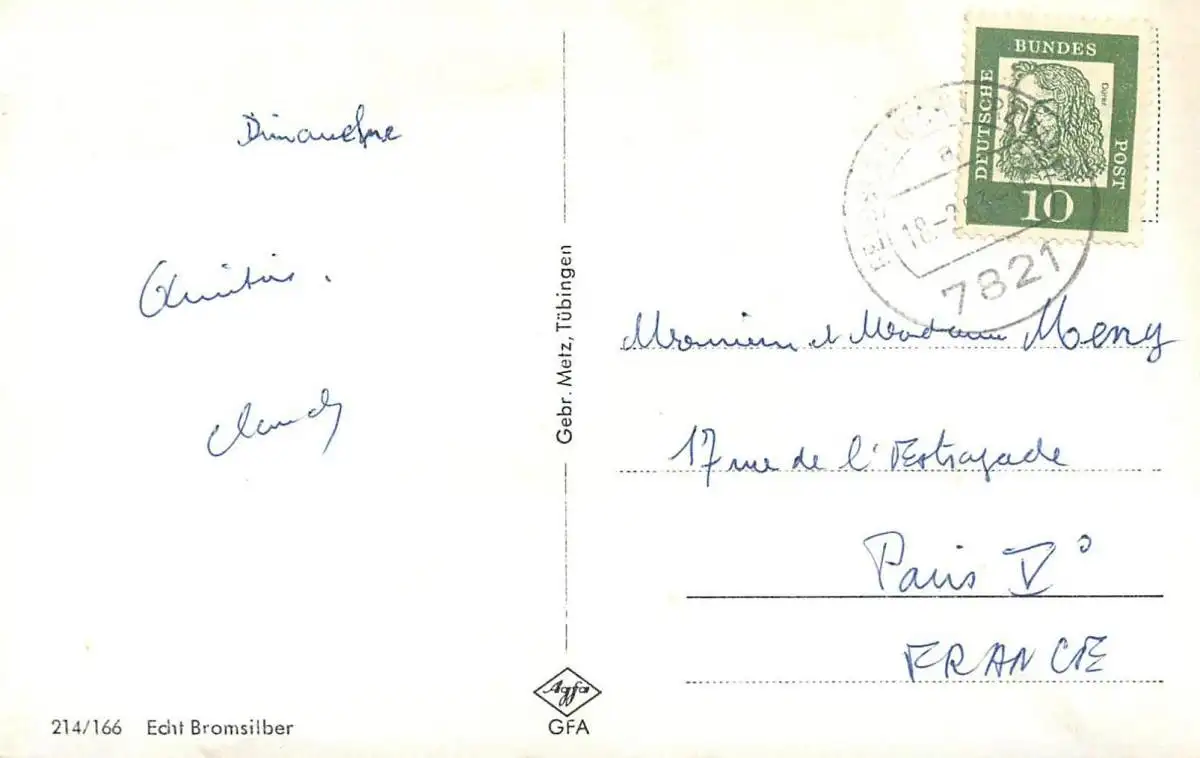 Dimanche
Amitiés.
Claude
Gebr. Metz, Tübingen
Agfa
GFA
214/166 Echt Bromsilber
DEUTSCHE
BUNDES
POST
Dürer
10
18.-
7821
Monsieur et Madame Meny
17 rue de l'Estrapade
Paris V°
FRANCE